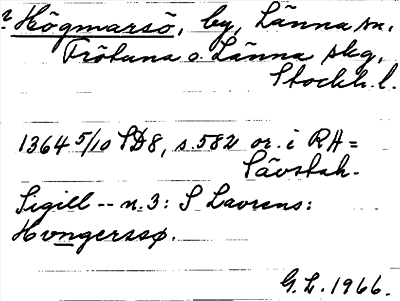 ? Högmarsö, by, Länna sn.
Frötuna o. Länna skg,
Stockh. l.
1364 5/10 SD8, s. 582 or. i RA =
Sävstah.
Sigill -- n. 3: S Laurens:
Hvngerssø.
G. L. 1966.